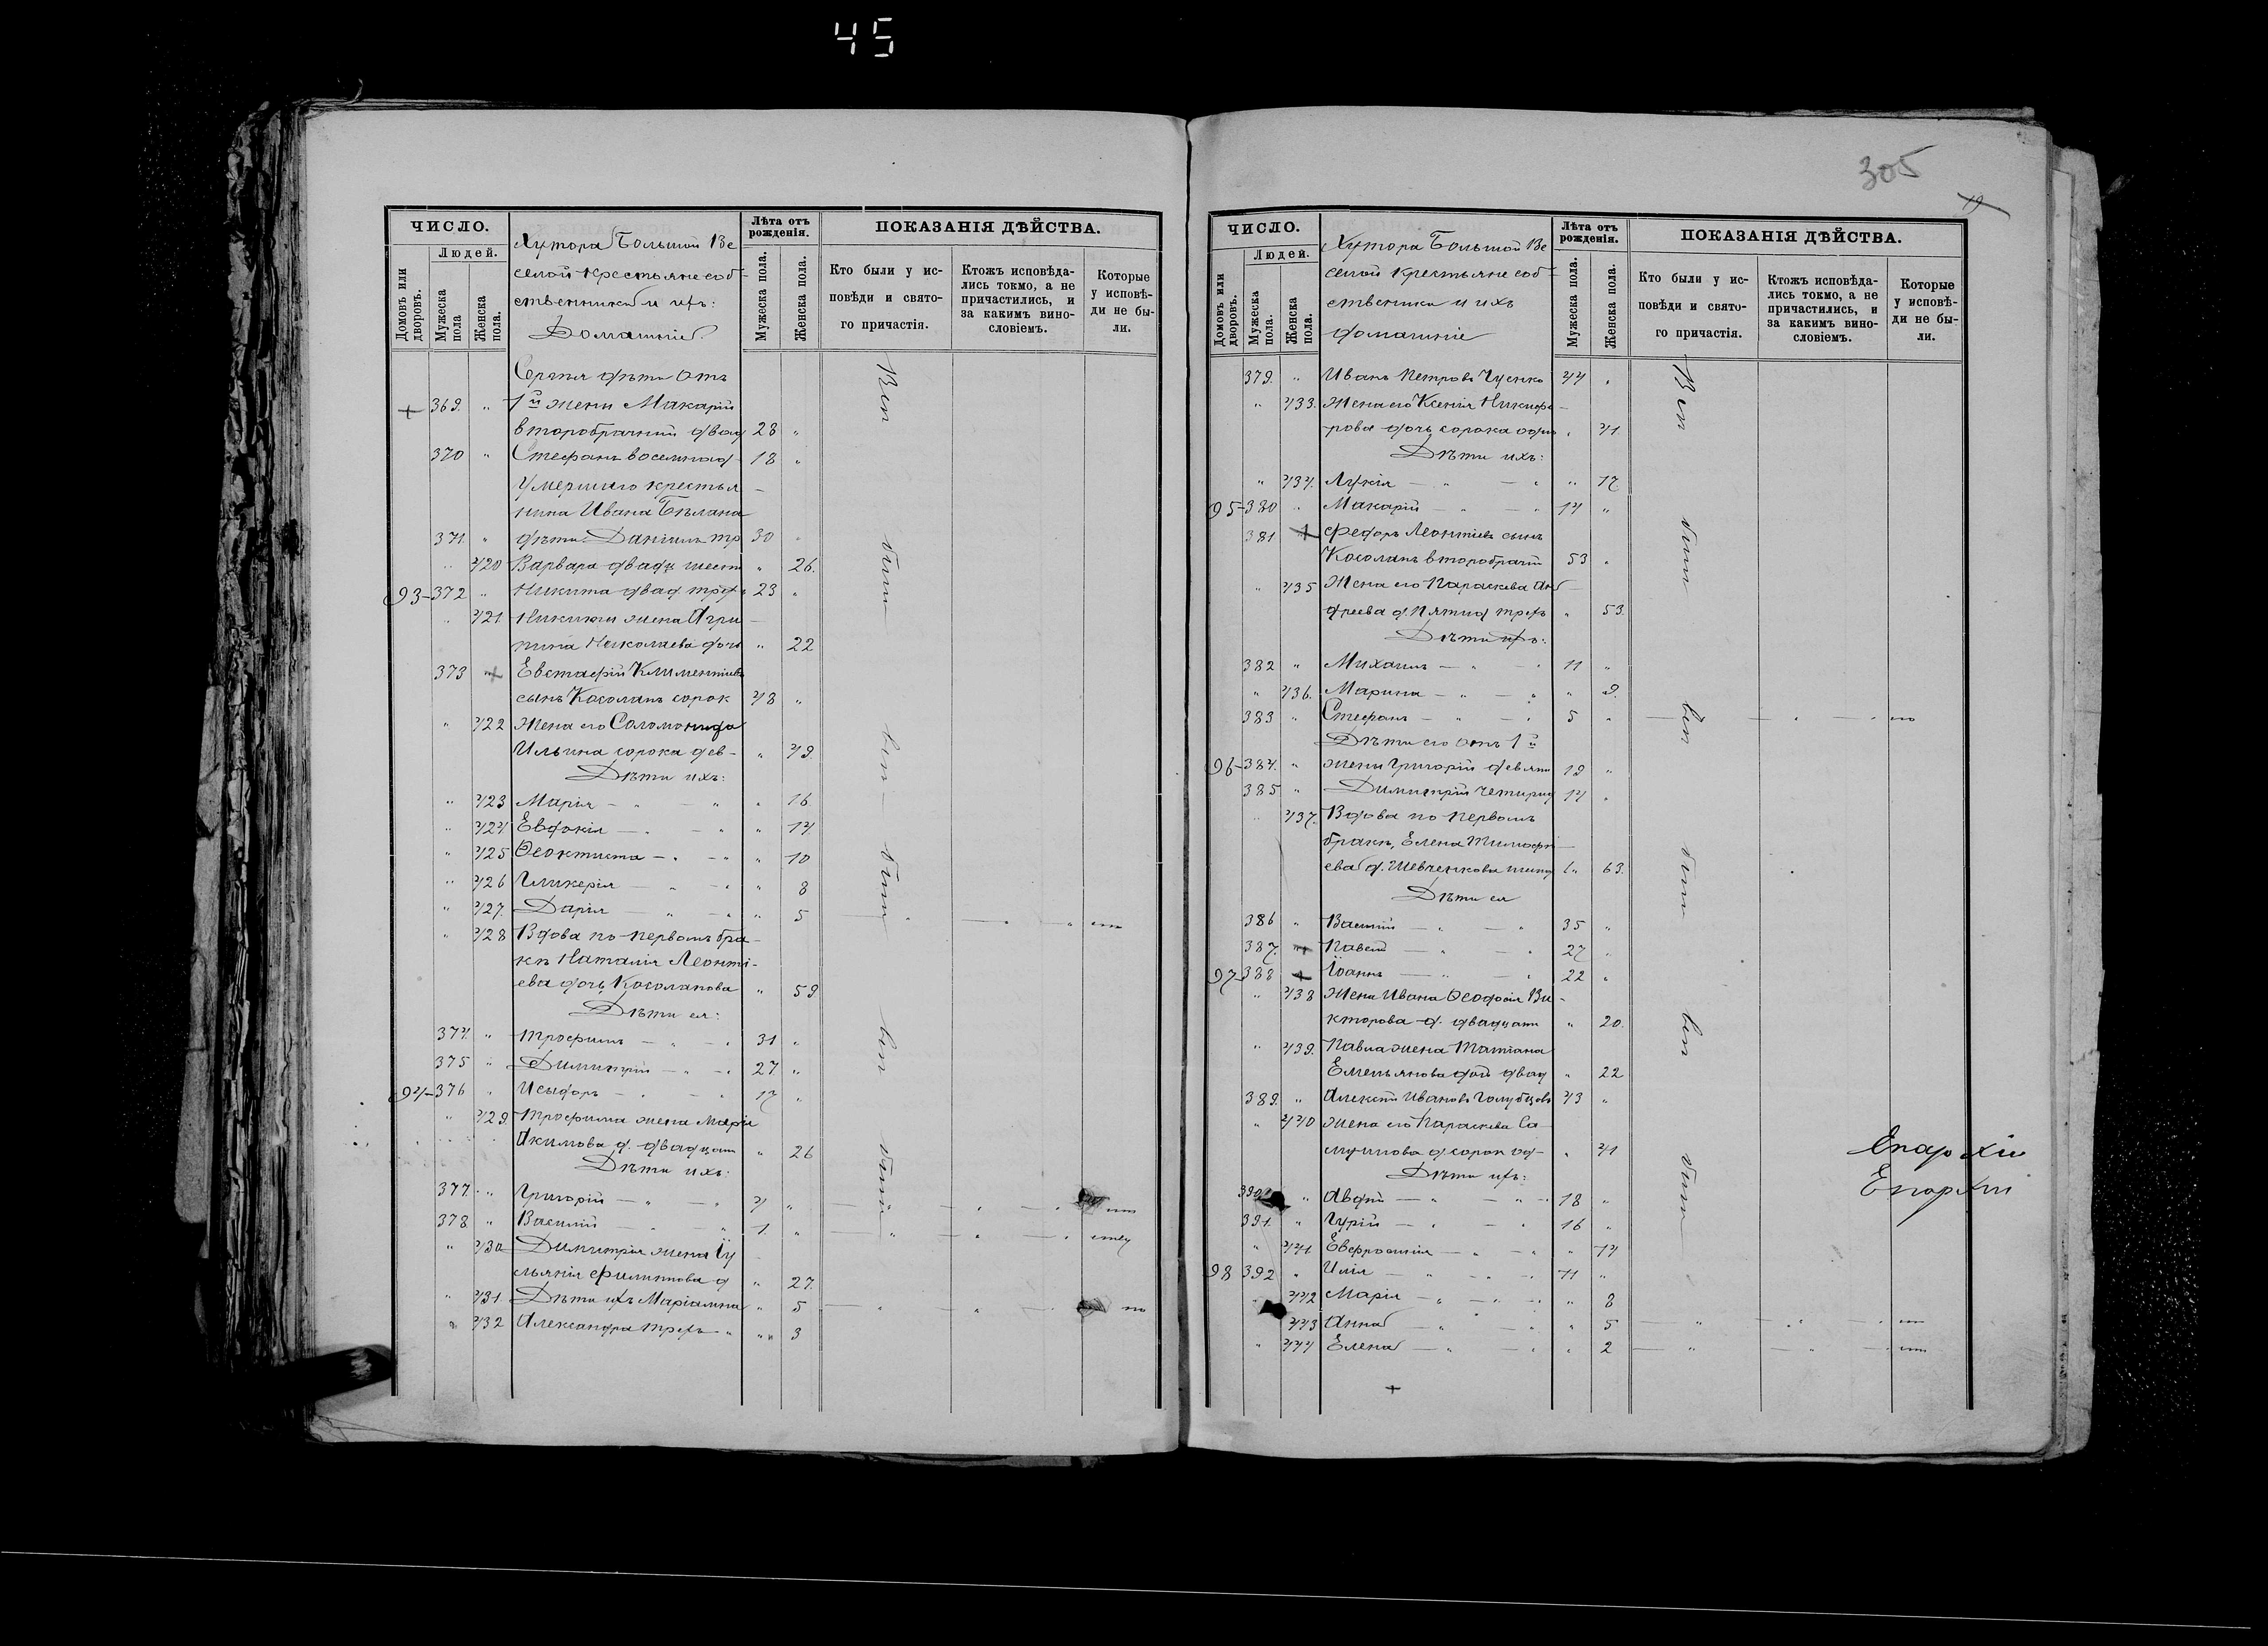 45
305
19
ЧИСЛО.
Людей.
Домовъ или дворовъ.
Мужеска пола
Женска пола.
Хутора Большой Ве
селой крестьяне соб=
ственники и ихъ:
Домашніе
Лѣта отъ рожденія.
Мужеска пола.
Женска пола.
ПОКАЗАНІЯ ДѢЙСТВА.
Кто были у исповѣди и святого причастія.
Ктожъ исповѣдались токмо, а не причастились, и за какимъ винословіемъ.
Которые у исповѣди не были.
Сергія дѣти отъ
369. " 1й жены Макарій
второбрачный двад 28 "
370 " Стефанъ восемнад 18 "
Умершаго крестья
нина Ивана Бѣлана
371 " дѣти: Даніилъ тр 30 "
" 420 Варвара двадц шест " 26.
93-372 " Никита двад трех 23 "
" 421 Никиты жена Агри
пина Николаева дочь " 22
373 Евстафій Климентіевъ
сынъ Косолапъ сорок 48 "
" 422 Жена его Соломонида
Ильина сорока дев- " 49.
Дѣти ихъ:
" 423 Марія - " - " " 16
" 424 Евдокія - " - " " 14.
" 425 Ѳеоктиста - " - " " 10
" 426 Гликерія - " - " " 8
" 427. Дарія - " - " " 5
" 428 Вдова по первомъ бра-
кѣ Наталія Леонті-
ева дочь Косолапова " 59
Дѣти ея:
374. " Трофимъ - " - " 31 "
375 " Димитрій - " - " 27 "
94-376 " Исидоръ - " - " 17 "
" 429. Трофима жена Марія
Акимова д. двадцати " 26
Дѣти ихъ:
377. " Григорій - " - " 4 "
378 " Василій - " - " 1. "
" 430 Димитрія жена Іу
ліанія Филиппова д " 27.
" 431. Дѣти ихъ Маріамна " 5
" 432 Александра трехъ " " 3
Вси были вси были вси были
ЧИСЛО.
Людей.
Домовъ или дворовъ.
Мужеска пола.
Женска пола.
Хутора Большой Ве
селой крестьяне соб=
ственики и ихъ
домашніе
Лѣта отъ рожденія.
Мужеска пола.
Женска пола.
ПОКАЗАНІЯ ДѢЙСТВА.
Кто были у исповѣди и святого причастія.
Ктожъ исповѣдались токмо, а не причастились, и за какимъ винословіемъ.
Которые у исповѣди не были.
379. " Иванъ Петровъ 44 "
" 433. Жена его Ксенія Никифо
рова дочь сорока одн " 41.
Дѣти ихъ:
" 434. Лукія - " - " " 17
95-380 " Макарій - " - " 14 "
381 Федоръ Леонтіевъ сынъ
Косолапъ второбрачн 53 "
" 435 Жена его Параскева Ан
дреева д. Пятид трехъ " 53.
Дѣти ихъ:
382 " Михаилъ - " - " 11 "
" 436. Марина - " - " " 9.
383 " Стефанъ - " - " 5 "
Дѣти его отъ 1й
96-384. " жены Григорій девятн 19 "
385 " Димитрій четырнд 14 "
" 437. Вдова по первомъ
бракѣ, Елена Тимофе
ева д. Шевченкова 63.
Дѣти ея
386 " Василій - " - " 35 "
387. Павелъ - " - " 27 "
97-388 Іоаннъ - " - " 22 "
" 438 Жена Ивана Ѳеодосія Ви-
кторова д. двадцати " 20.
" 439. Павла жена Татіана
Емельянова доч двад " 22
389. " Алексѣй Ивановъ Голубцовъ 43 "
" 440 Жена его Параскева Са
муилова д сорок од- " 41
Дѣти ихъ:
390 " Авдій - " - " 18 "
391. " Гурій - " - " 16 "
" 441 Евфросинія - " - " " 14
98 392 " Илія - " - " 11 "
" 442 Марія - " - " " 8
443 Анна - " - " " 5
" 444 Елена - " - " " 2
Вси были вси были вси были
Епархіи
Епархіи